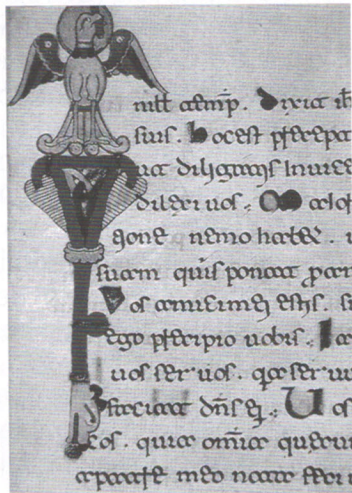 temp. Dixit ih
suis. hoc est p̄cep
ut diligatis Inuice
dilexi uos.
nemo habet.
suam quis ponat pro
Vos amici mei estis. si
ego p̄cipio uobis. I
uos seruos. quia seruu
faciat dn̄s ei. Uos
cos. quia omnia quecu
a patre meo nota feci